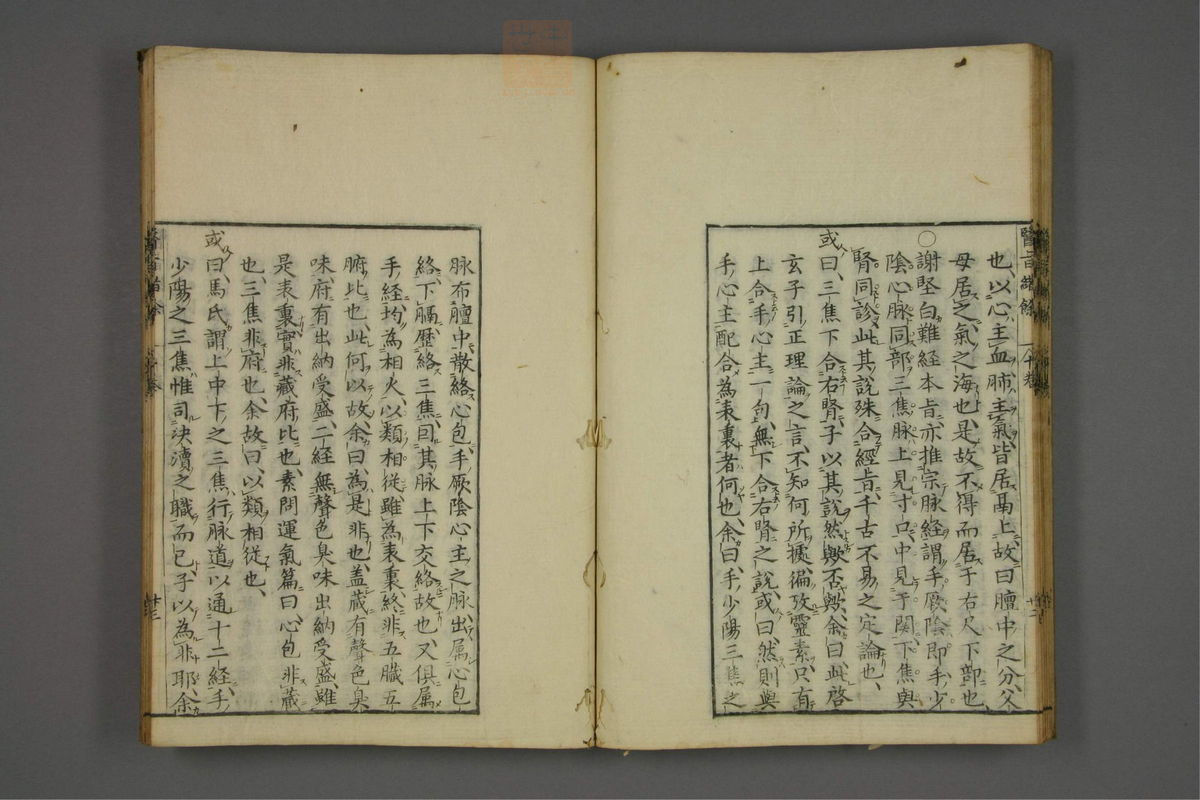 也、以心、主血、肺主氣、皆居鬲上、故曰膻中之分、父
母居之、氣之海也、是故不得而居于右尺下部也、
○謝堅白難経本旨、亦推宗脉経、謂手厥陰即手少
陰心脉同部、三焦脉上見寸口、中見于関、下焦與
腎同診、此其說殊合経旨、千古不易之定論也、
或曰、三焦下合右腎、子以其說然歟否歟、余曰、此啓
玄子引正理論之言、不知何所據、徧攷靈素、只有
上合手心主一句、無下合右腎之說、或曰、然則與
手心主配合為表裏者何也、余曰、手少陽三焦之
脉布膻中、散絡心包、手厥陰心主之脉、出属心包
絡、下膈、歷絡三焦、囙其脉上下交絡故也、又俱属
手経、均為相火、以類相從、雖為表裏、終非五臓五
腑比也、此何以故、余曰、為是非也、盖藏有聲色臭
味、府有出納受盛、二経無聲色臭味出納受盛、雖
是表裏、實非藏府比也、素問運氣篇曰、心包非藏
也、三焦非府也、余故曰、以類相從也、
或曰、馬氏謂上中下之三焦、行脉道以通十二経、手
少陽之三焦、惟司决瀆之職而已、子以為非耶、余
廿二
廿三